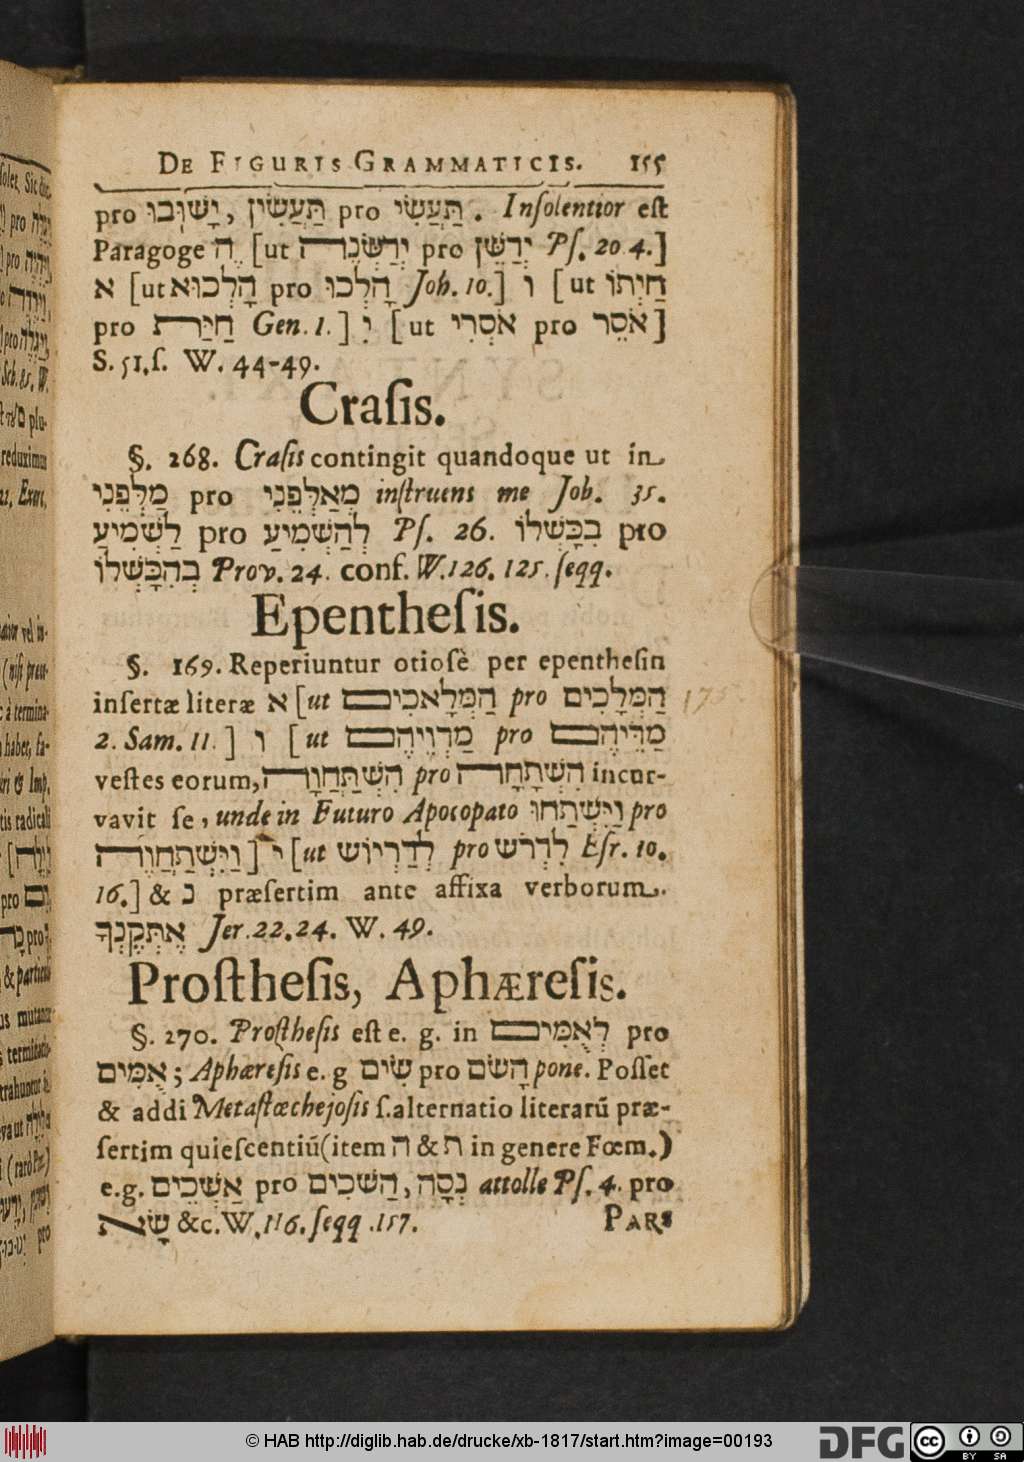 DE FIGURIS GRAMMATICIS. 155
pro יָשׁוּבוּ, תַּעֲשִׂין pro תַּעֲשִׂי. Insolentior est
Paragoge הָ [ut יְרַשְּׁנֶה pro יְרַשֵּׁן Ps. 20 4.]
א [ut הָלְכוּא pro הָלְכוּ Joh. 10.] ו [ut חַיְתוֹ
pro חַיַּת Gen. 1.] יִ [ut אֹסְרִי pro אֹסֵר]
S. 51. s. W. 44-49.
Crasis.
§. 268. Crasis contingit quandoque ut in
מַלְּפֵנִי pro מְאַלְפֵנִי instruens me Job. 35.
לַשְׁמִיעַ pro לְהַשְׁמִיעַ Ps. 26. בִכָּשְׁלוֹ pro
בְהִכָּשְׁלוֹ Prov. 24. conf. W. 126. 125. seqq.
Epenthesis.
§. 169. Reperiuntur otiosè per epenthesin
insertæ literæ א [ut הַמְּלָאכִים pro הַמְּלָכִים
2. Sam. 11.] ו [ut מַדְוֵיהֶם pro מַדֵּיהֶם
vestes eorum, הִשְׁתַּחֲוָה pro הִשְׁתָּחָה incur-
vavit se, unde in Futuro Apocopato וַיִּשְׁתַּחוּ pro
וַיִּשְׁתַּחֲוֶה] י [ut לְדַרְיוֹשׁ pro לִדְרֹשׁ Esr. 10.
16.] & נ præsertim ante affixa verborum.
אֶתְּקֶנְךָ Jer. 22. 24. W. 49.
Prosthesis, Aphæresis.
§. 270. Prosthesis est e. g. in לְאֻמִּים pro
אֻמִּים; Aphæresis e. g שִׂים pro הָשִׂם pone. Posset
& addi Metastœchejosis s. alternatio literarū præ-
sertim quiescentiū (item ה & ת in genere Fœm.)
e.g. אַשְׁכֵּים pro הַשְׁכִּים, נְסָה attolle Ps. 4. pro
שָׂא &c. W. 116. seqq. 157. PARS
© HAB http://diglib.hab.de/drucke/xb-1817/start.htm?image=00193
DFG
cc BY SA